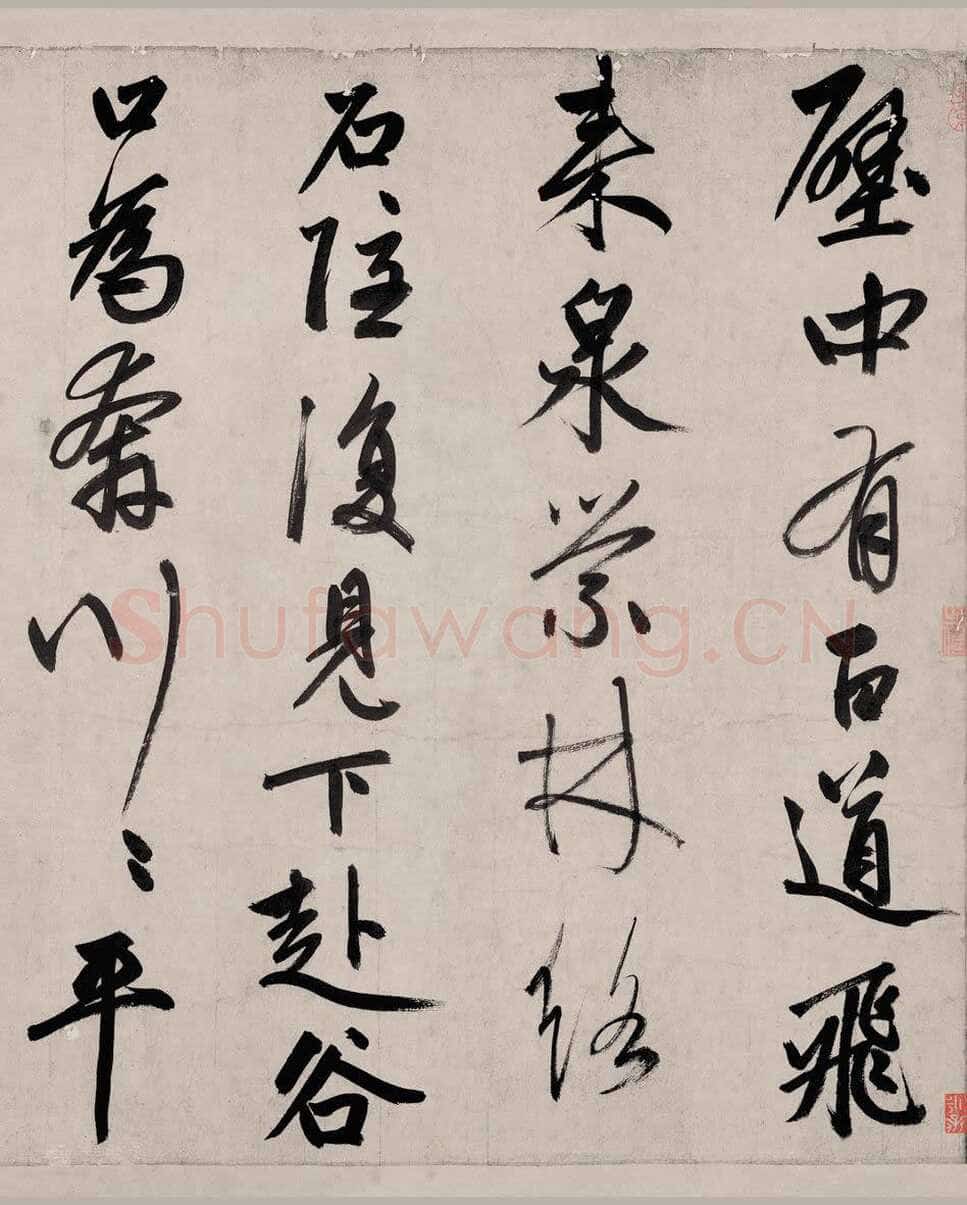 壁中有百道飛
來泉縈林絡
石隱復見下赴谷
口為奔川〻平
Shufawang.CN